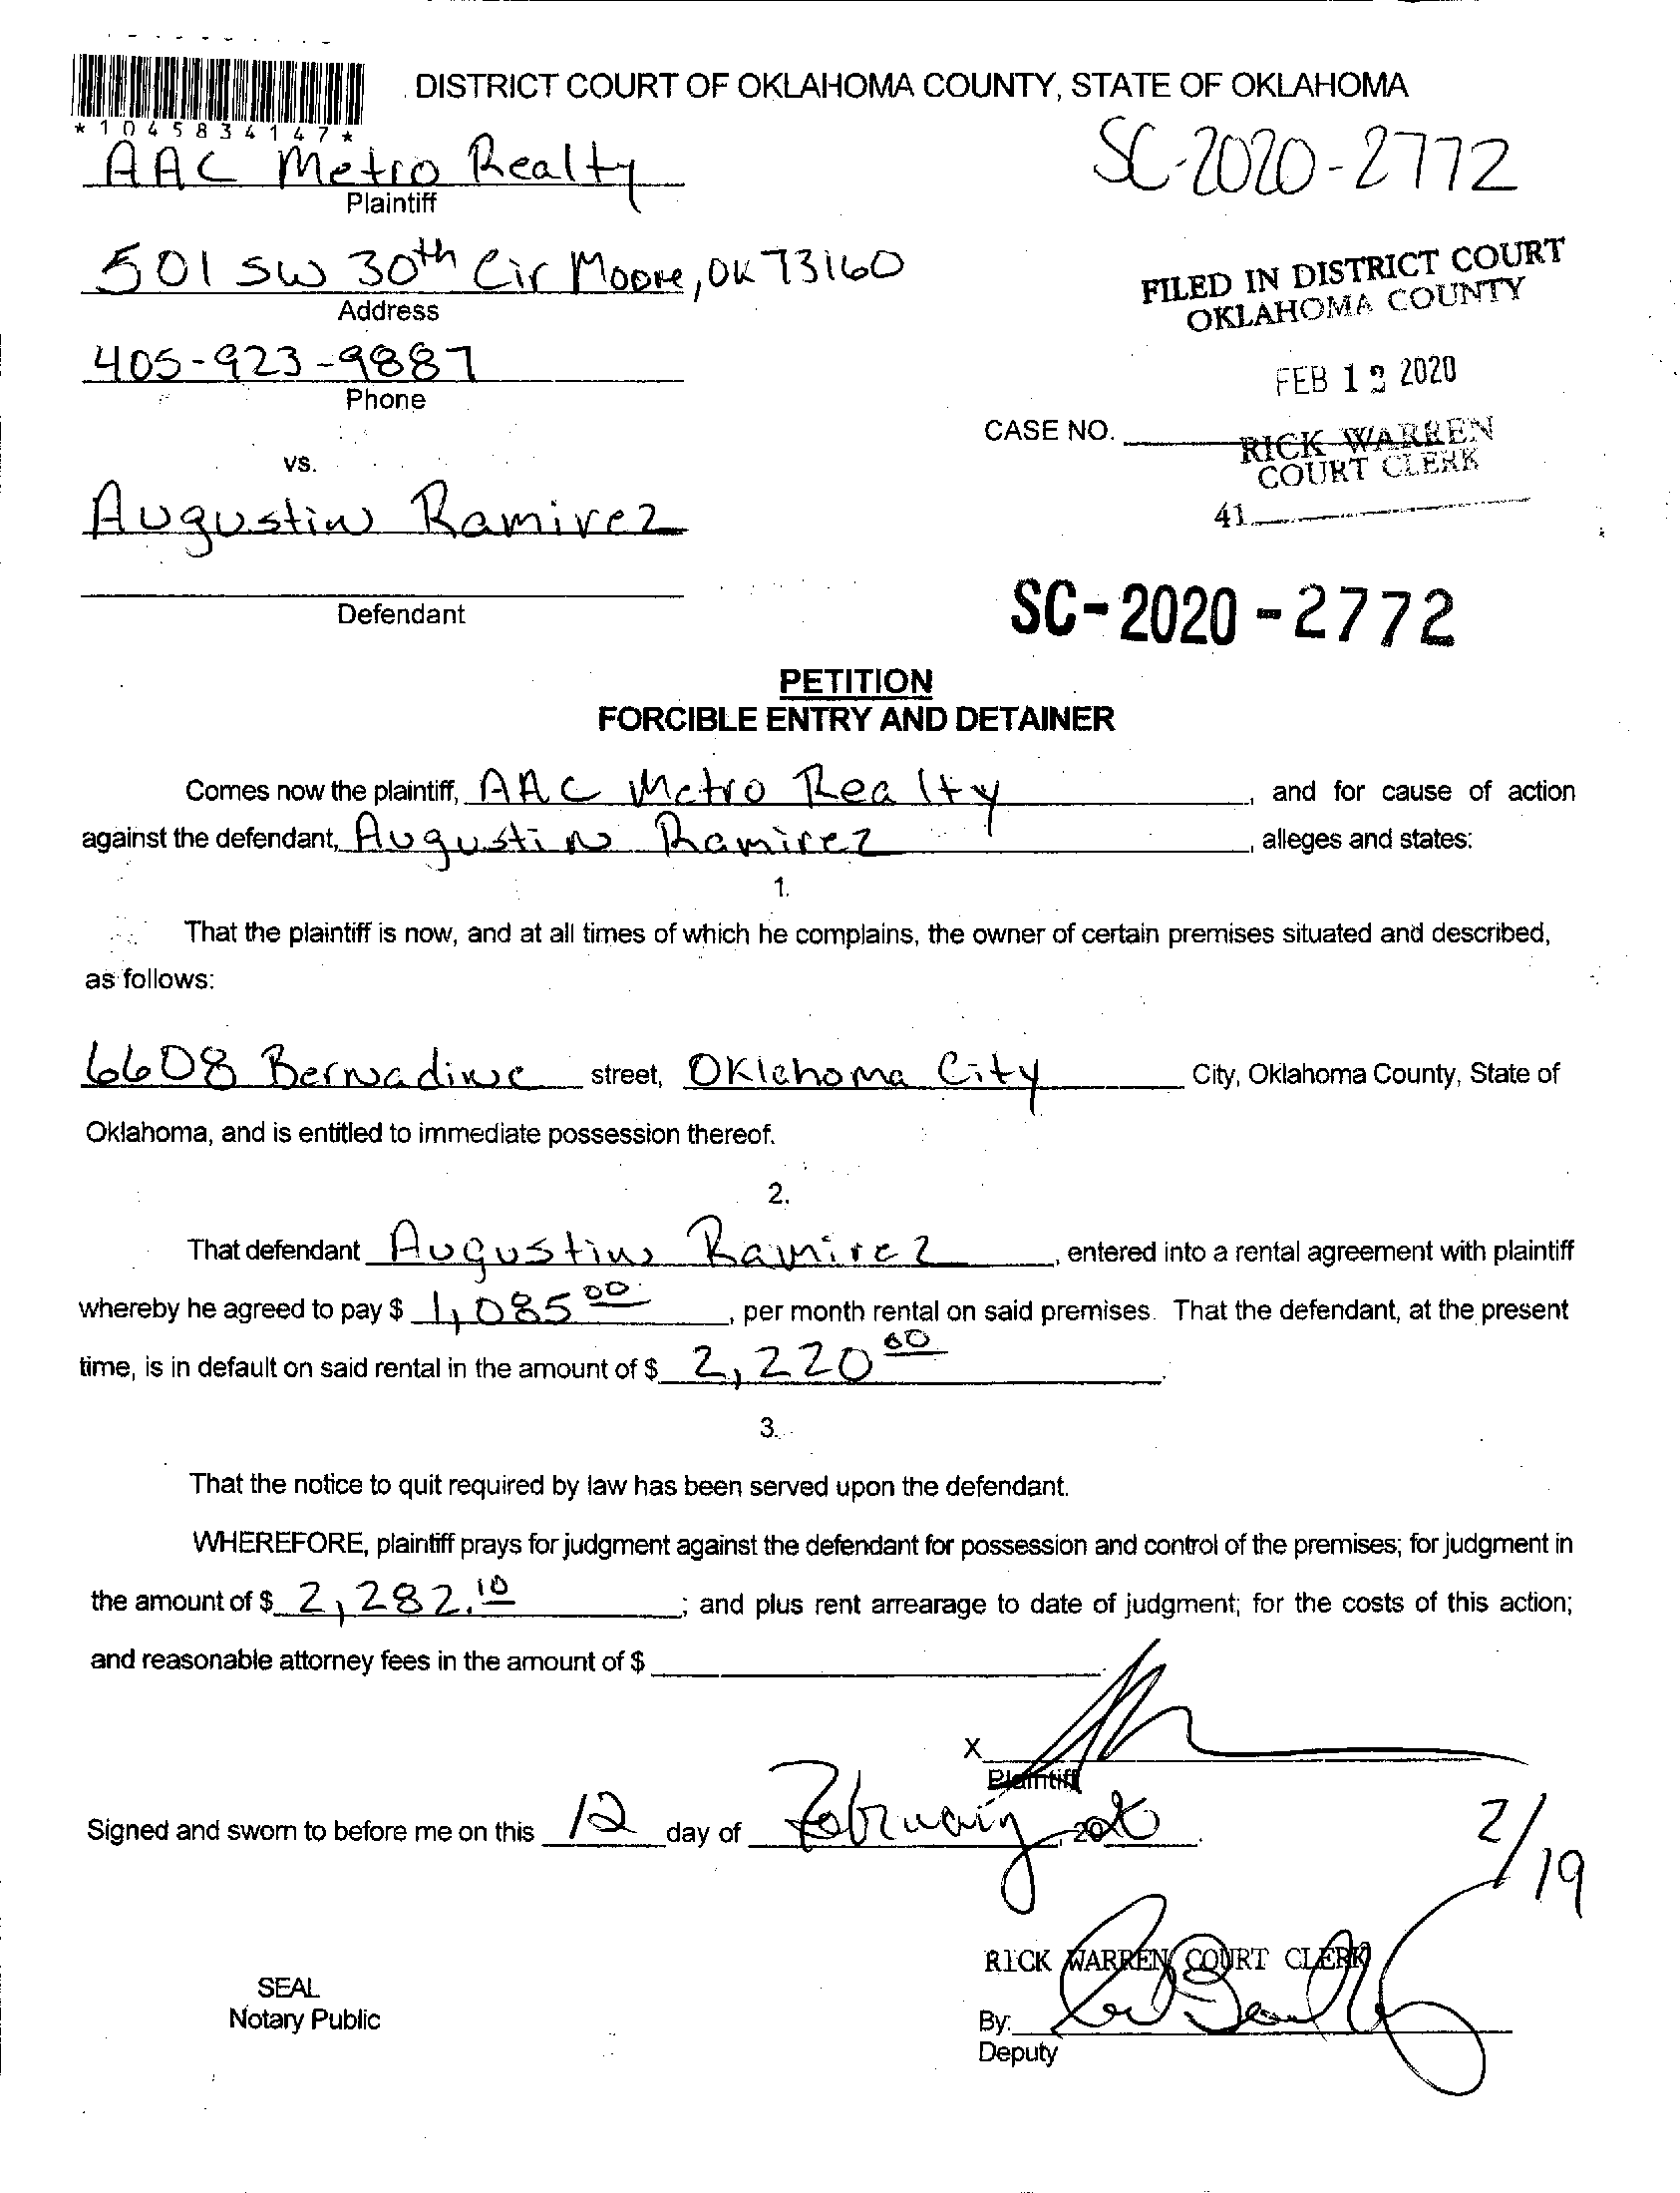 DISTRICT COURT OF OKLAHOMA COUNTY, STATE OF OKLAHOMA
*1045834147*
AAC Metro Realty
Plaintiff
SC-2020-2772
501 SW 30th Cir Moore, OK 73160
Address
FILED IN DISTRICT COURT
OKLAHOMA COUNTY
405-923-9887
Phone
FEB 1 2020
CASE NO.
RICK WARREN
COURT CLERK
vs.
41
Augustin Ramirez
Defendant
SC-2020-2772
PETITION
FORCIBLE ENTRY AND DETAINER
Comes now the plaintiff, AAC Metro Realty, and for cause of action
against the defendant, Augustin Ramirez, alleges and states:
1.
That the plaintiff is now, and at all times of which he complains, the owner of certain premises situated and described,
as follows:
6608 Bernadine street, Oklahoma City City, Oklahoma County, State of
Oklahoma, and is entitled to immediate possession thereof.
2.
That defendant Augustin Ramirez, entered into a rental agreement with plaintiff
whereby he agreed to pay $ 1,085 00, per month rental on said premises. That the defendant, at the present
time, is in default on said rental in the amount of $ 2,220 00.
3.
That the notice to quit required by law has been served upon the defendant.
WHEREFORE, plaintiff prays for judgment against the defendant for possession and control of the premises; for judgment in
the amount of $ 2,282.10; and plus rent arrearage to date of judgment; for the costs of this action;
and reasonable attorney fees in the amount of $
X
Plaintiff
Signed and sworn to before me on this 12 day of February, 2020.
2/19
RICK WARREN COURT CLERK
SEAL
Notary Public
By:
Deputy